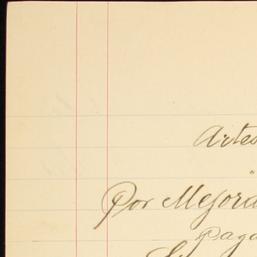 Artes
Por Mejora
Paga